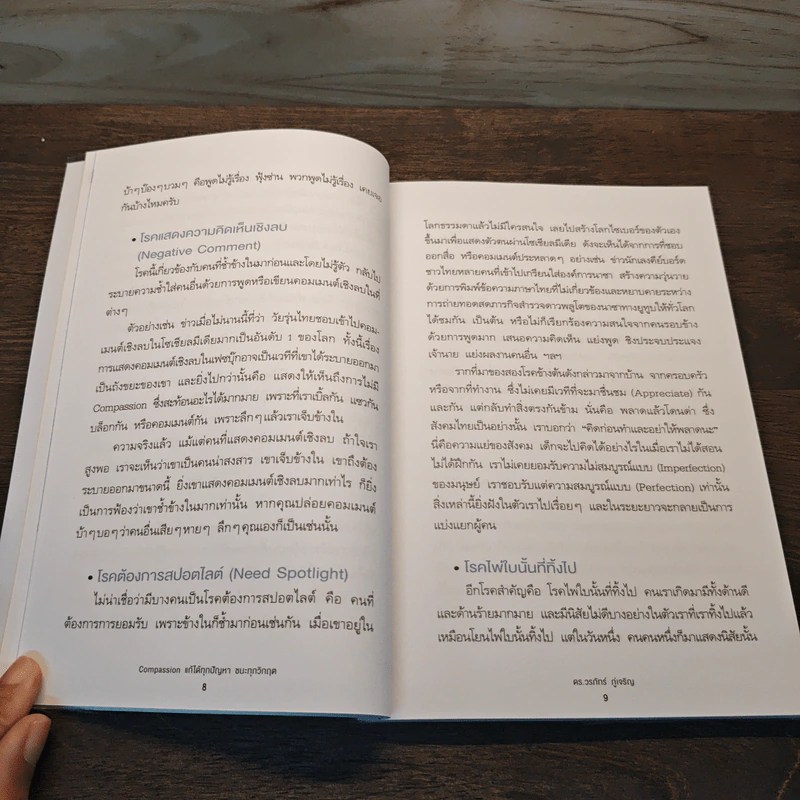 บ้าๆบ๊องๆบวมๆ คือพูดไม่รู้เรื่อง ฟุ้งซ่าน พวกพูดไม่รู้เรื่อง เคยเจอ
กันบ้างไหมครับ
• โรคแสดงความคิดเห็นเชิงลบ
(Negative Comment)
โรคนี้เกี่ยวข้องกับคนที่ช้ำข้างในมาก่อนและโดยไม่รู้ตัว กลับไป
ระบายความช้ำใส่คนอื่นด้วยการพูดหรือเขียนคอมเมนต์เชิงลบในที่
ต่างๆ
ตัวอย่างเช่น ข่าวเมื่อไม่นานนี้ที่ว่า วัยรุ่นไทยชอบเข้าไปคอม-
เมนต์เชิงลบในโซเชียลมีเดียมากเป็นอันดับ 1 ของโลก ทั้งนี้เรื่อง
การแสดงคอมเมนต์เชิงลบในเฟซบุ๊กอาจเป็นเวทีที่เขาได้ระบายออกมา
เป็นถังขยะของเขา และยิ่งไปกว่านั้นคือ แสดงให้เห็นถึงการไม่มี
Compassion ซึ่งสะท้อนอะไรได้มากมาย เพราะที่เราเบิ้ลกัน แซวกัน
บล็อกกัน หรือคอมเมนต์กัน เพราะลึกๆ แล้วเราเจ็บข้างใน
ความจริงแล้ว แม้แต่คนที่แสดงคอมเมนต์เชิงลบ ถ้าใจเรา
สูงพอ เราจะเห็นว่าเขาเป็นคนน่าสงสาร เขาเจ็บข้างใน เขาถึงต้อง
ระบายออกมาขนาดนี้ ยิ่งเขาแสดงคอมเมนต์เชิงลบมากเท่าไร ก็ยิ่ง
เป็นการฟ้องว่าเขาช้ำข้างในมากเท่านั้น หากคุณปล่อยคอมเมนต์
บ้าๆบอๆว่าคนอื่นเสียๆหายๆ ลึกๆ คุณเองก็เป็นเช่นนั้น
• โรคต้องการสปอตไลต์ (Need Spotlight)
ไม่น่าเชื่อว่ามีบางคนเป็นโรคต้องการสปอตไลต์ คือ คนที่
ต้องการการยอมรับ เพราะข้างในก็ช้ำมาก่อนเช่นกัน เมื่อเขาอยู่ใน
Compassion แก้ได้ทุกปัญหา ชนะทุกวิกฤต
8
โลกธรรมดาแล้วไม่มีใครสนใจ เลยไปสร้างโลกไซเบอร์ของตัวเอง
ขึ้นมาเพื่อแสดงตัวตนผ่านโซเชียลมีเดีย ดังจะเห็นได้จากการที่ชอบ
ออกสื่อ หรือคอมเมนต์ประหลาดๆ อย่างเช่น ข่าวนักเลงคีย์บอร์ด
ชาวไทยหลายคนที่เข้าไปเกรียนใส่องค์การนาซา สร้างความวุ่นวาย
ด้วยการพิมพ์ข้อความภาษาไทยที่ไม่เกี่ยวข้องและหยาบคายระหว่าง
การถ่ายทอดสดภารกิจสำรวจดาวพลูโตของนาซาทางยูทูบให้ทั่วโลก
ได้ชมกัน เป็นต้น หรือไม่ก็เรียกร้องความสนใจจากคนรอบข้าง
ด้วยการพูดมาก เสนอความคิดเห็น แย่งพูด ชิงประจบประแจง
เจ้านาย แย่งผลงานคนอื่น ฯลฯ
รากที่มาของสองโรคข้างต้นดังกล่าวมาจากบ้าน จากครอบครัว
หรือจากที่ทำงาน ซึ่งไม่เคยมีเวทีที่จะมาชื่นชม (Appreciate) กัน
และกัน แต่กลับทำสิ่งตรงกันข้าม นั่นคือ พลาดแล้วโดนด่า ซึ่ง
สังคมไทยเป็นอย่างนั้น เราบอกว่า “คิดก่อนทำและอย่าให้พลาดนะ”
นี่คือความแย่ของสังคม เด็กจะไปคิดได้อย่างไรในเมื่อเราไม่ได้สอน
ไม่ได้ฝึกกัน เราไม่เคยยอมรับความไม่สมบูรณ์แบบ (Imperfection)
ของมนุษย์ เราชอบรับแต่ความสมบูรณ์แบบ (Perfection) เท่านั้น
สิ่งเหล่านี้ยิ่งฝังในตัวเราไปเรื่อยๆ และในระยะยาวจะกลายเป็นการ
แบ่งแยกผู้คน
• โรคไพ่ใบนั้นที่ทิ้งไป
อีกโรคสำคัญคือ โรคไพ่ใบนั้นที่ทิ้งไป คนเราเกิดมามีทั้งด้านดี
และด้านร้ายมากมาย และมีนิสัยไม่ดีบางอย่างในตัวเราที่เราทิ้งไปแล้ว
เหมือนโยนไพ่ใบนั้นทิ้งไป แต่ในวันหนึ่ง คนคนหนึ่งก็มาแสดงนิสัยนั้น
ดร.วรภัทร์ ภู่เจริญ
9